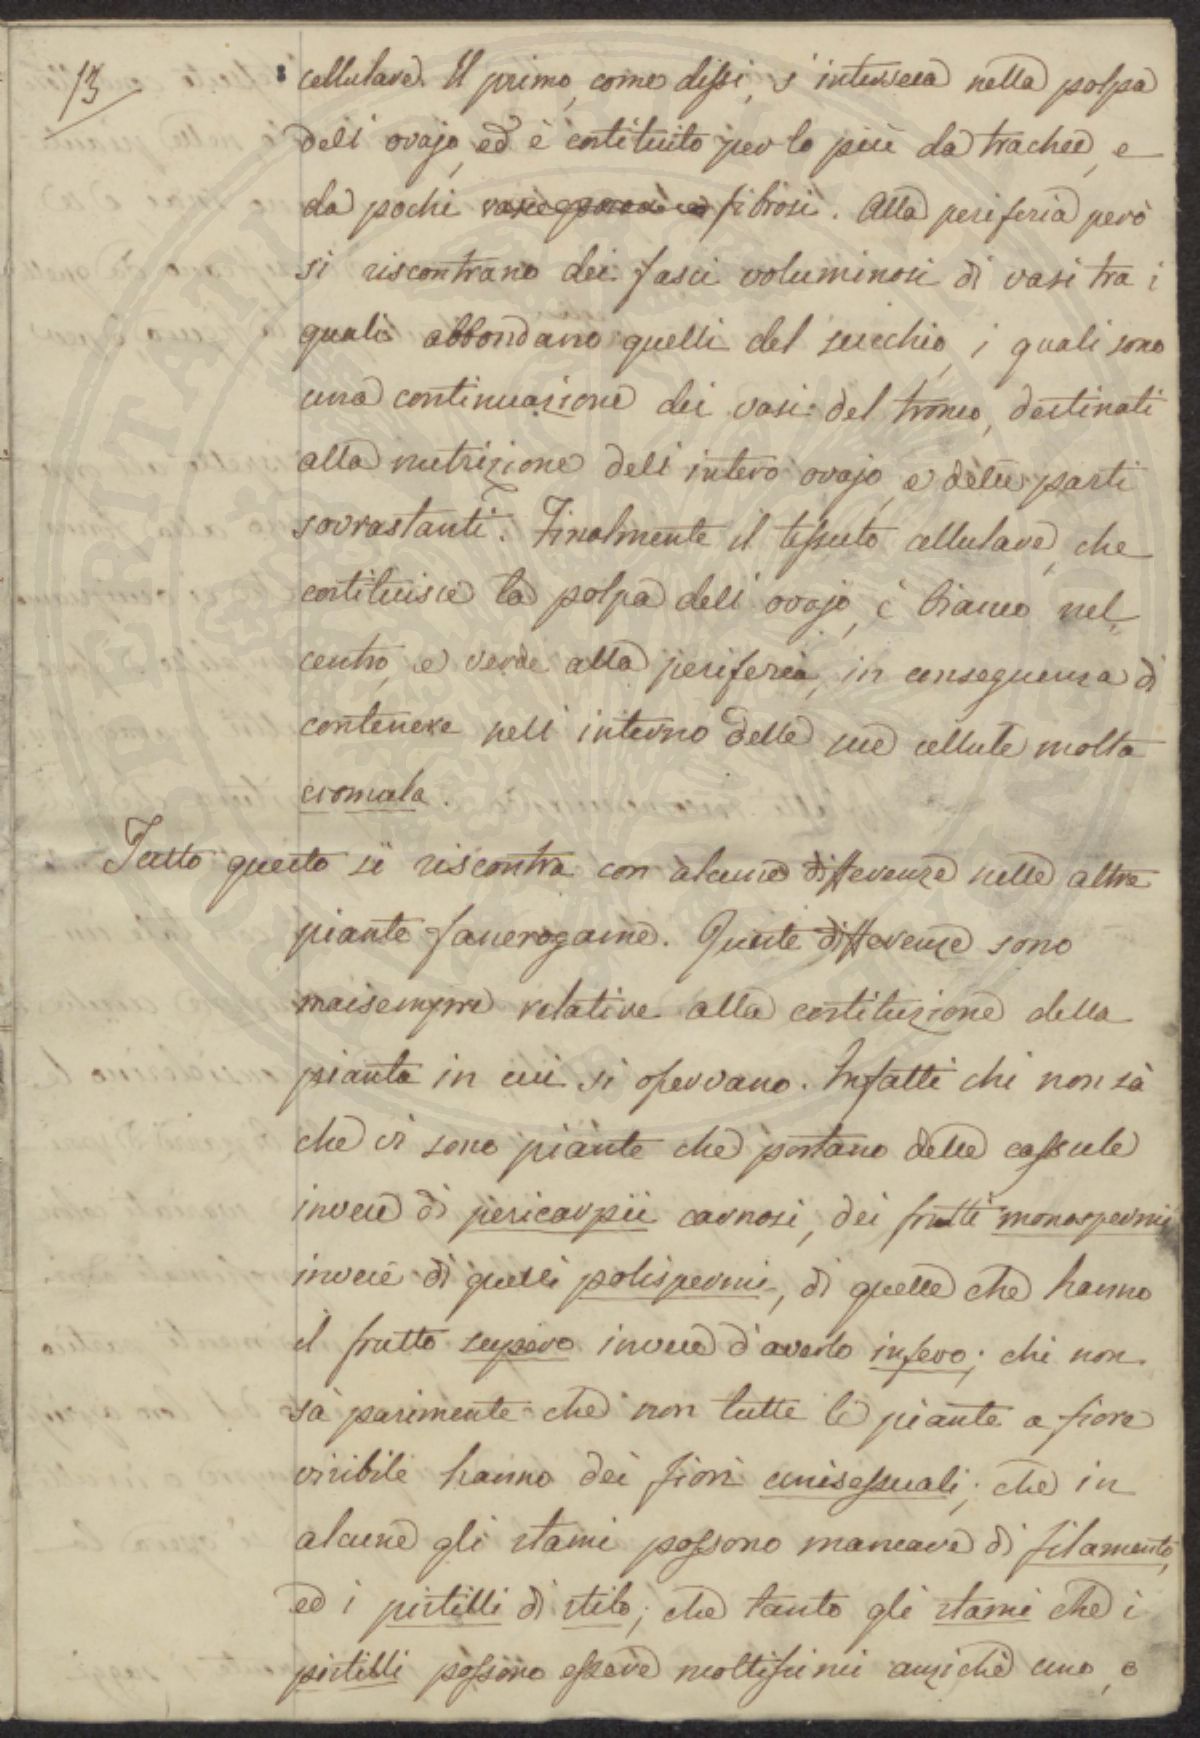 13
cellulare. Il primo, come dissi, s'interseca nella polpa
dell'ovajo, ed è costituito per lo più da trachee, e
da pochi fibrosi. Alla periferia però
si riscontrano dei fasci voluminosi di vasi tra i
quali abbondano quelli del succhio, i quali sono
una continuazione dei vasi del tronco, destinati
alla nutrizione dell'intero ovajo, e delle parti
sovrastanti. Finalmente il tessuto cellulare, che
costituisce la polpa dell'ovajo, è bianco nel
centro, e verde alla periferia, in conseguenza di
contenere nell'interno delle sue cellule molta
cromula.
Tutto questo si riscontra con alcune differenze nelle altre
piante fanerogame. Queste differenze sono
maisempre relative alla costituzione della
pianta in cui si osservano. Infatti chi non sà
che vi sono piante che portano delle cassule
invece di pericarpii carnosi, dei frutti monospermi
invece di quelli polispermi, di quelle che hanno
il frutto supero invece d'averlo infero; chi non
sà parimente che non tutte le piante a fiore
visibile hanno dei fiori unisessuali; che in
alcune gli stami possono mancare di filamento,
ed i pistilli di stilo; che tanto gli stami che i
pistilli possono essere moltissimi anzichè uno, o